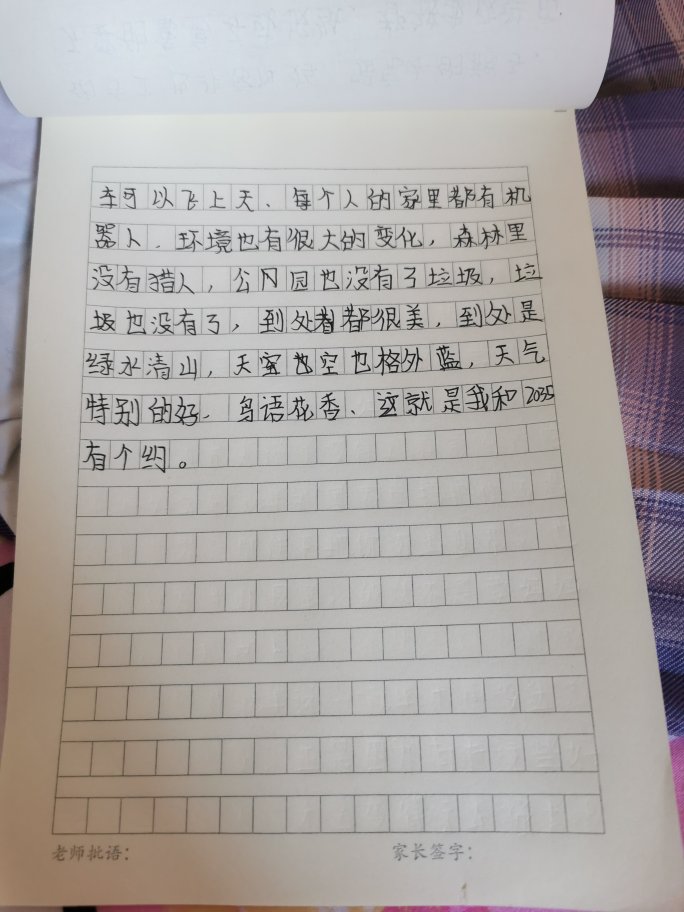 车可以飞上天、每个人的家里都有机
器人、环境也有很大的变化，森林里
没有猎人，公园也没有了垃圾，垃
圾也没有了，到处都很美，到处是
绿水清山，天空也空也格外蓝，天气
特别的好、鸟语花香、这就是我和2035
有个约。
老师批语：
家长签字：